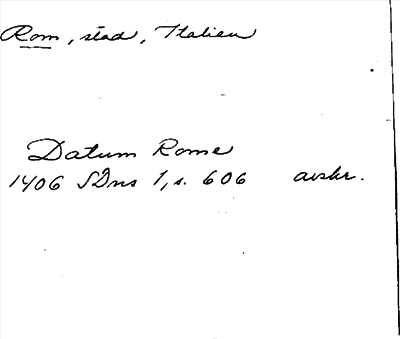 Rom, stad, Italien
Datum Rome
1406 SDns 1, s. 606 avskr.